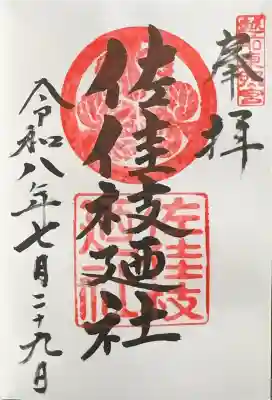 奉拝
佐佳枝廼社
令和八年七月二十九日
佐佳枝
廼社